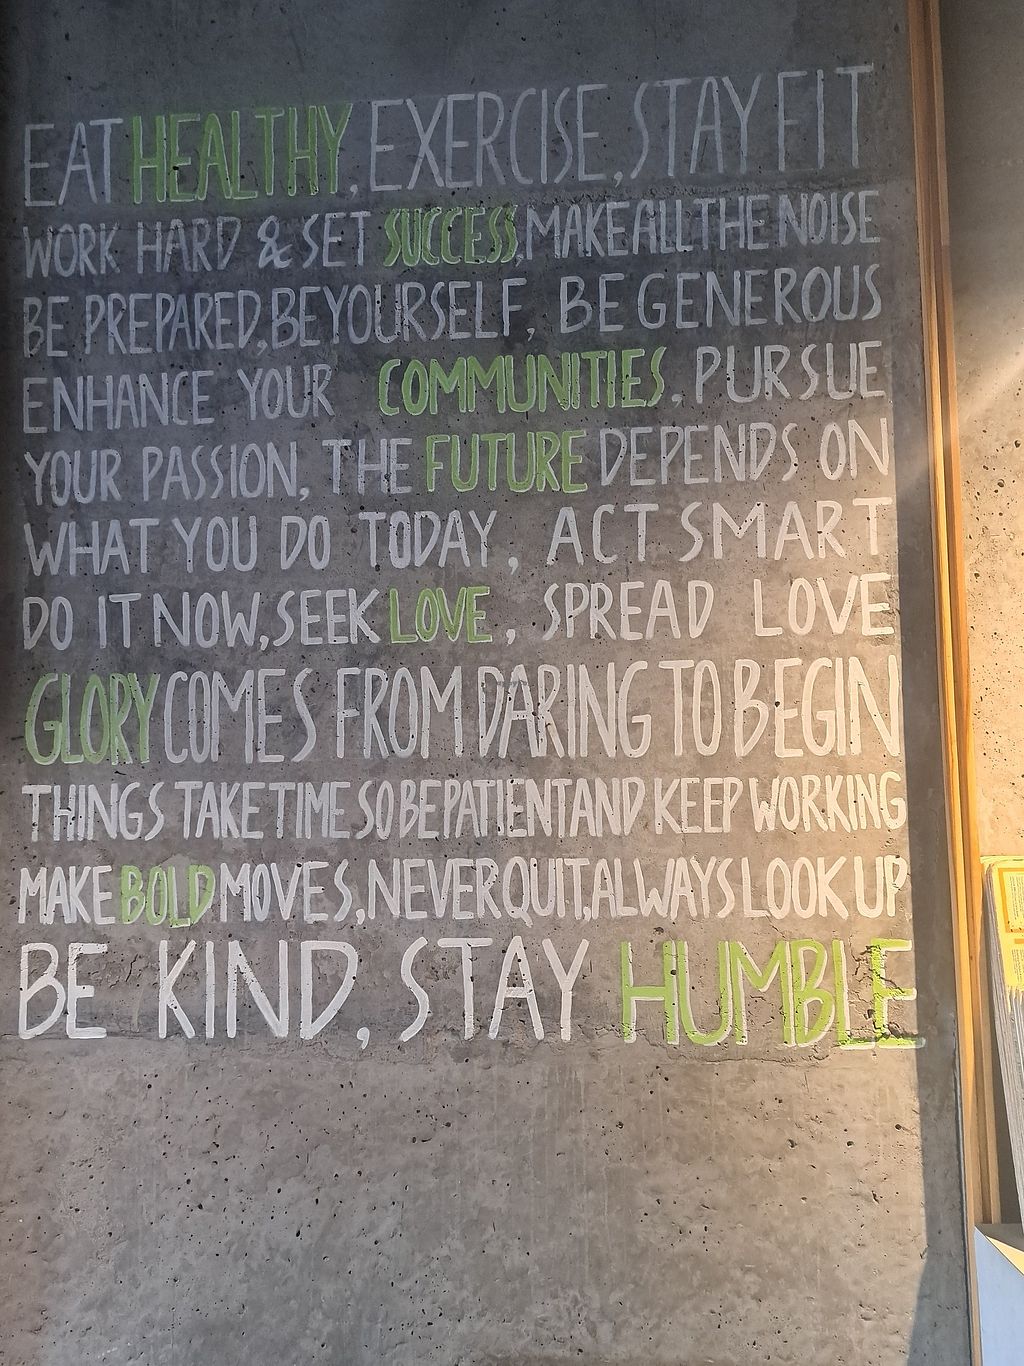 EAT HEALTHY, EXERCISE, STAY FIT
WORK HARD & SET SUCCESS, MAKE ALL THE NOISE
BE PREPARED, BE YOURSELF, BE GENEROUS
ENHANCE YOUR COMMUNITIES. PURSUE
YOUR PASSION, THE FUTURE DEPENDS ON
WHAT YOU DO TODAY, ACT SMART
DO IT NOW, SEEK LOVE, SPREAD LOVE
GLORY COMES FROM DARING TO BEGIN
THINGS TAKE TIME SO BE PATIENT AND KEEP WORKING
MAKE BOLD MOVES, NEVER QUIT, ALWAYS LOOK UP
BE KIND, STAY HUMBLE